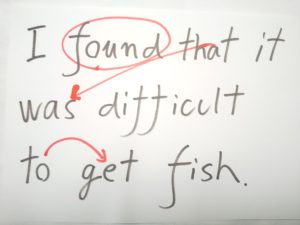 I found that it
was difficult
to get fish.